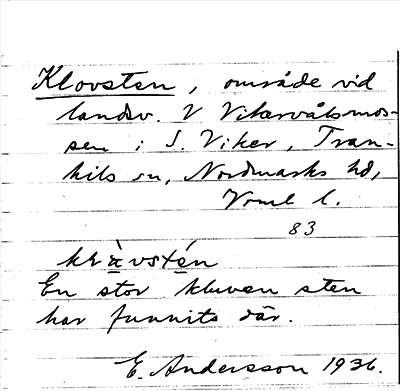 Klovsten, område vid
landsv. V Vikervålsmos-
sen i S. Viker, Tran-
kils sn, Nordmarks hd,
Vrml l.
83
klòvstén
En stor kluven sten
har funnits där.
E. Andersson 1936.